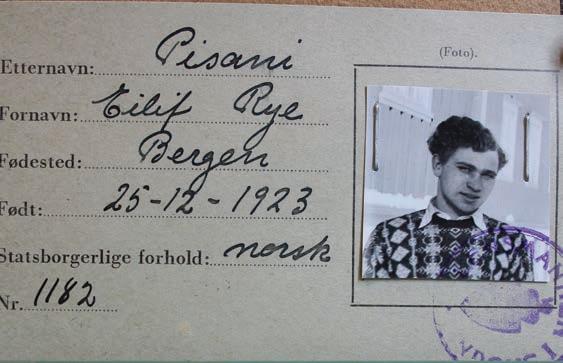 (Foto).
Etternavn: Pisani
Fornavn: Eilif Rye
Fødested: Bergen
Født: 25-12-1923
Statsborgerlige forhold: norsk
Nr. 1182